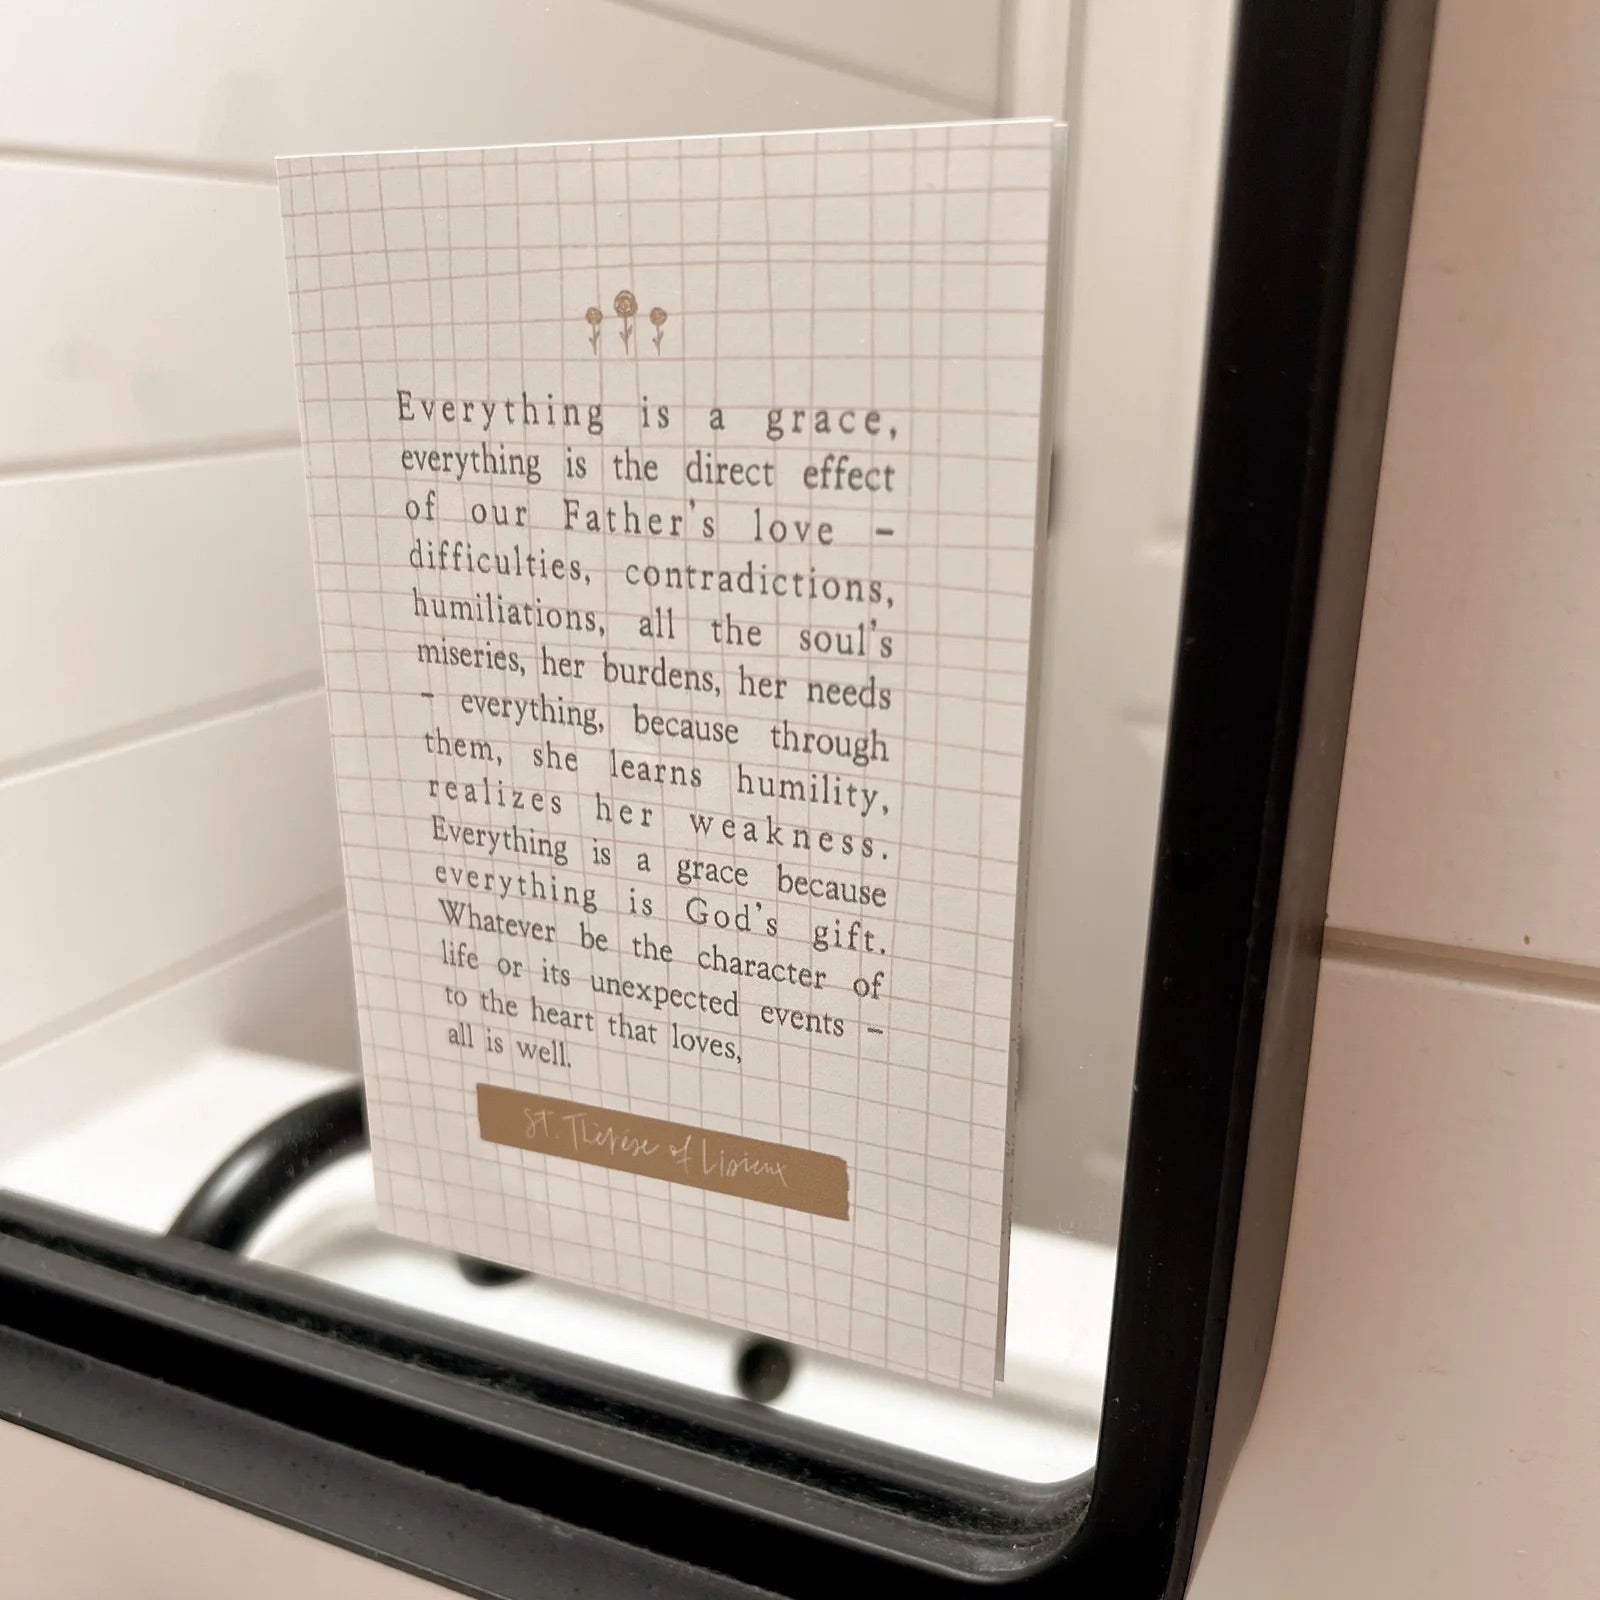 Everything is a grace,
everything is the direct effect
of our Father's love –
difficulties, contradictions,
humiliations, all the soul's
miseries, her burdens, her needs
– everything, because through
them, she learns humility,
realizes her weakness.
Everything is a grace because
everything is God's gift.
Whatever be the character of
life or its unexpected events –
to the heart that loves,
all is well.
St. Thérèse of Lisieux